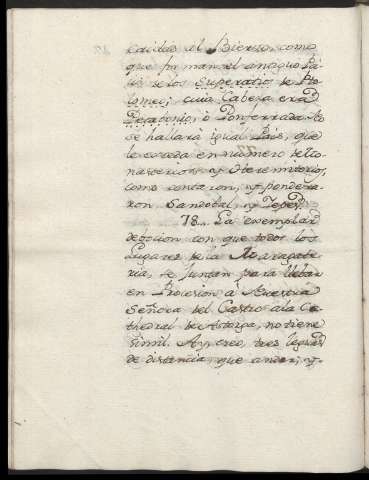 caidas al Bierzo, como
que fu man el antiguo Pa-
is de los Superatios de Pto-
lomeo; cuia Cabeza era
Pe
o Ponferrada. No
se hallarà igual Pais, que
le exceda en numero de Mo-
nasterios, y Oteremitorios,
como contaron, y pondera-
ron Sandobal, y Yepes.
78... La exemplar
debocion con que todos los
Lugares de la Maragate-
ria, se juntan para llebar
en Procesion à Nuestra
Señora del Castro a la Ca-
thedral de Astorga, no tiene
simil. Ay, creo, tres leguas
de distancia que andar, y